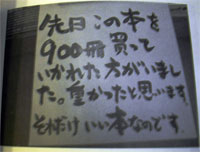 先日この本を
900冊買って
いかれた方がいまし
た。重かったと思います。
それだけいい本なのです。